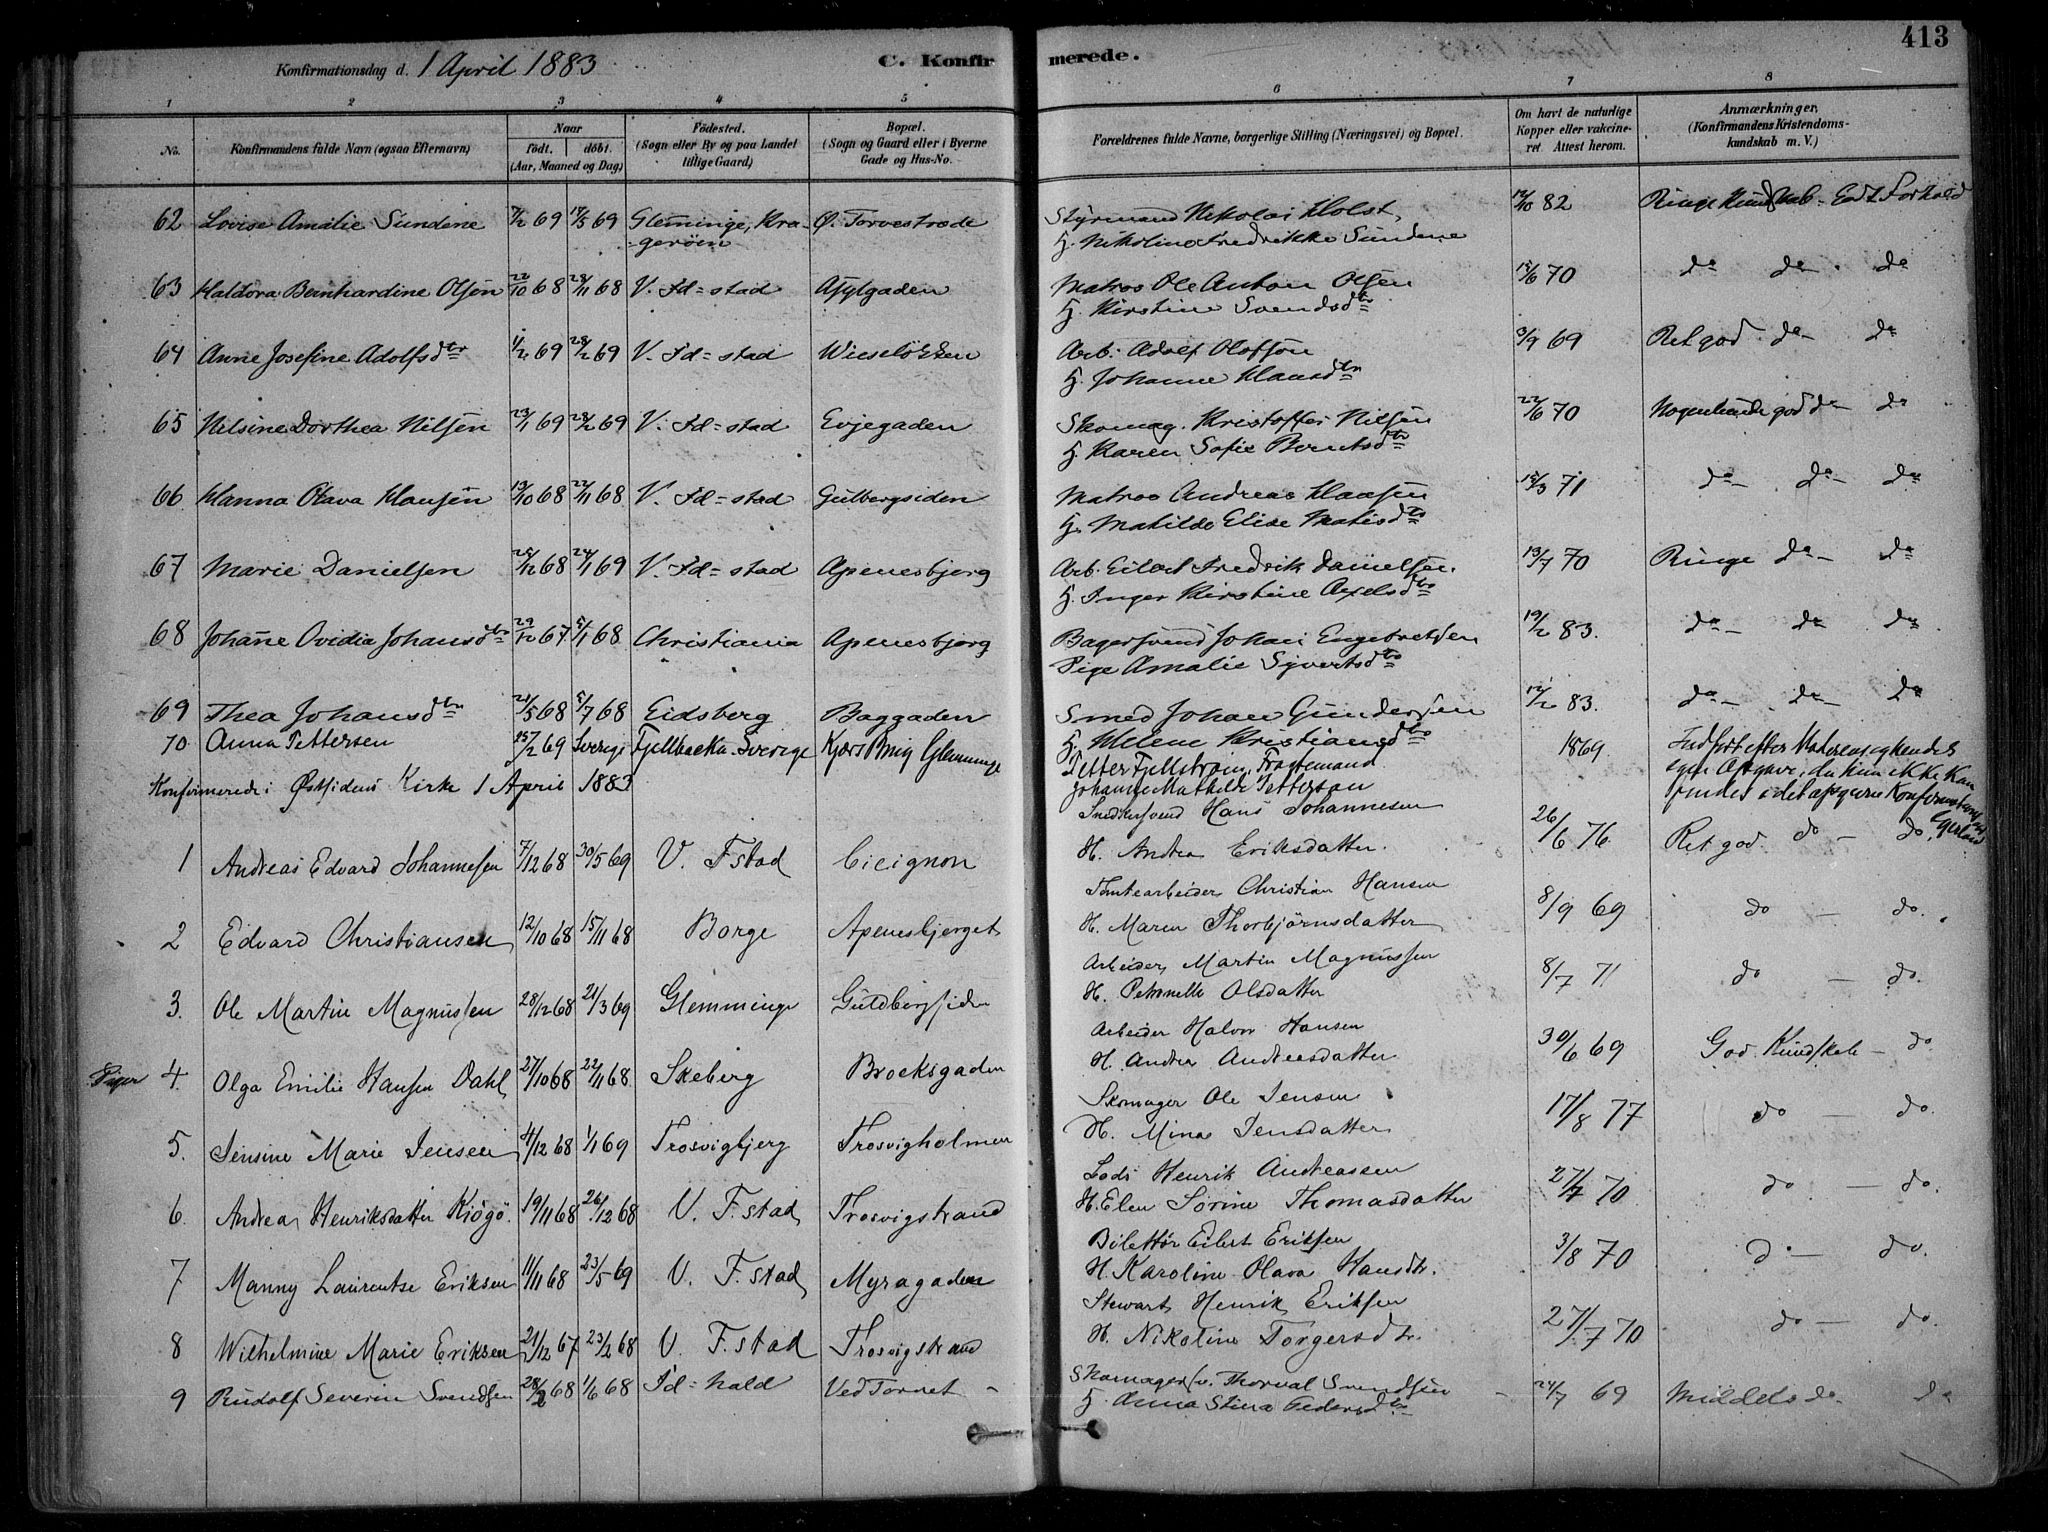 413
Konfirmationsdag d. 1 April 1883 C. Konfirmerede.
1 2 3 4 5 6 7 8
No. Konfirmandens fulde Navn (ogsaa Efternavn) Naar født. døbt. (Aar, Maaned og Dag) Födested. (Sogn eller By og paa Landet tillige Gaard) Bopæl. (Sogn og Gaard eller i Byerne Gade og Hus-No. Forældrenes fulde Navne, borgerlige Stilling (Næringsvei) og Bopæl. Om havt de naturlige Kopper eller vakcineret Attest herom. Anmærkninger. (Konfirmandens Kristendomskundskab m. V.)
62 Lovise Amalie Sundene 7/2 69 17/5 69 Glemminge, Kra- Ø. Torvestræde Styrmand Nikolai Holst, 12/10 82 Ringe Kundskab - Godt Forhold
-gerøen H. Nikoline Fredrikke Sundene
63 Haldora Bernhardine Olsen 22/10 68 28/11 68 V. Fd=stad Asylgaden Matros Ole Anton Olsen 15/6 70 do do do
H. Kirstine Svendsdtr
64 Anne Josefine Adolfsdtr 1/2 69 28/2 69 V. Fd=stad Wieseløkken Arb. Adolf Olofson 3/9 69 Ret god do do
H. Johanne Hansdtr
65 Nilsine Dorthea Nilsen 23/1 69 28/2 69 V. Fd=stad Evjegaden Skomag. Kristoffer Nilsen 22/6 70 Nogenlunde god do do
H. Karen Sofie Berntsdtr
66 Hanna Olava Hansen 13/10 68 22/11 68 V. Fd=stad Gulbergsiden Matros Andreas Hansen 15/3 71 do do do
H. Matilde Elise Matisdtr
67 Marie Danielsen 25/12 68 24/1 69 V. Fd=stad Apenesbjerg Arb. Eilert Fredrik Danielsen. 13/7 70 Ringe do do
H. Inger Kirstine Axelsdtr
68 Johanne Ovidia Johansdtr 29/10 67 5/1 68 Christiania Apenesbjerg Bagersvend Johan Engebretsen 19/2 83. do do do
Pige Amalie Syvertsdtr
69 Thea Johansdtr 21/5 68 5/7 68 Eidsberg Baggaden Smed Johan Gundersen 12/2 83. do do do
H. Helene Kristiansdtr
70 Anna Pettersen 15/2 69 Sverige Fjellbacka Sverige Kjærs Brug Glemminge Petter Fjellstrøm, Fragtemand 1869 Indført efter Vedkommendes
Johanne Mathilde Pettersen egen Opgave, da hun ikke kan
Konfirmerede i Østsidens Kirke 1 April 1883 findes i det afsagte Konfirmations
1 Andreas Edvard Johannesen 7/12 68 30/5 69 V. Fstad Cicignon Snedkersvend Hans Johannesen 26/6 76 Ret god. do - do.
H. Andrea Eriksdatter.
2 Edvard Christiansen 12/10 68 15/11 68 Borge Apenesbjerget Tomtearbeider Christian Hansen 8/9 69 do - do.
H. Maren Thorbjørnsdatter
3. Ole Martin Magnussen 28/12 68 21/3 69 Glemminge Guldbergsiden Arbeider Martin Magnussen 8/7 71 do - do.
H. Petronelle Olsdatter
Piger 4. Olga Emilie Hansen Dahl 27/10 68 22/11 68 Skeberg Brocksgaden Arbeider Halvor Hansen 30/6 69 God Kundskab - do
H. Andrea Andreasdatter
5. Jensine Marie Jensen 4/12 68 1/1 69 Trosvigbjerg Trosvigholmen Skomager Ole Jensen 17/8 77 do - do.
H. Mina Jensdatter
6. Andrea Henriksdatter Kjøgø. 19/11 68 26/12 68 V. F.stad Trosvigstrand Lods Henrik Andreassen 27/7 70 do - do.
H. Elen Sørine Thomasdatter
7 Manny Laurentse Eriksen 11/11 68 23/5 69 V. F.stad Myragaden Biletør Eilert Eriksen 3/8 70 do - do.
H. Karoline Olava Hansdtr.
8 Wilhelmine Marie Eriksen 21/12 67 23/2 68 V. F.stad Trosvigstrand Stewart Henrik Eriksen 27/7 70 do - do.
H. Nikoline Torgersdtr.
9 Rudolf Severin Svendsen 28/2 68 1/6 68 Fd=hald Ved Torvet Skomagersv. Thorval Svendsen 24/7 69 Middels do do
H. Anna Stina Pedersdtr